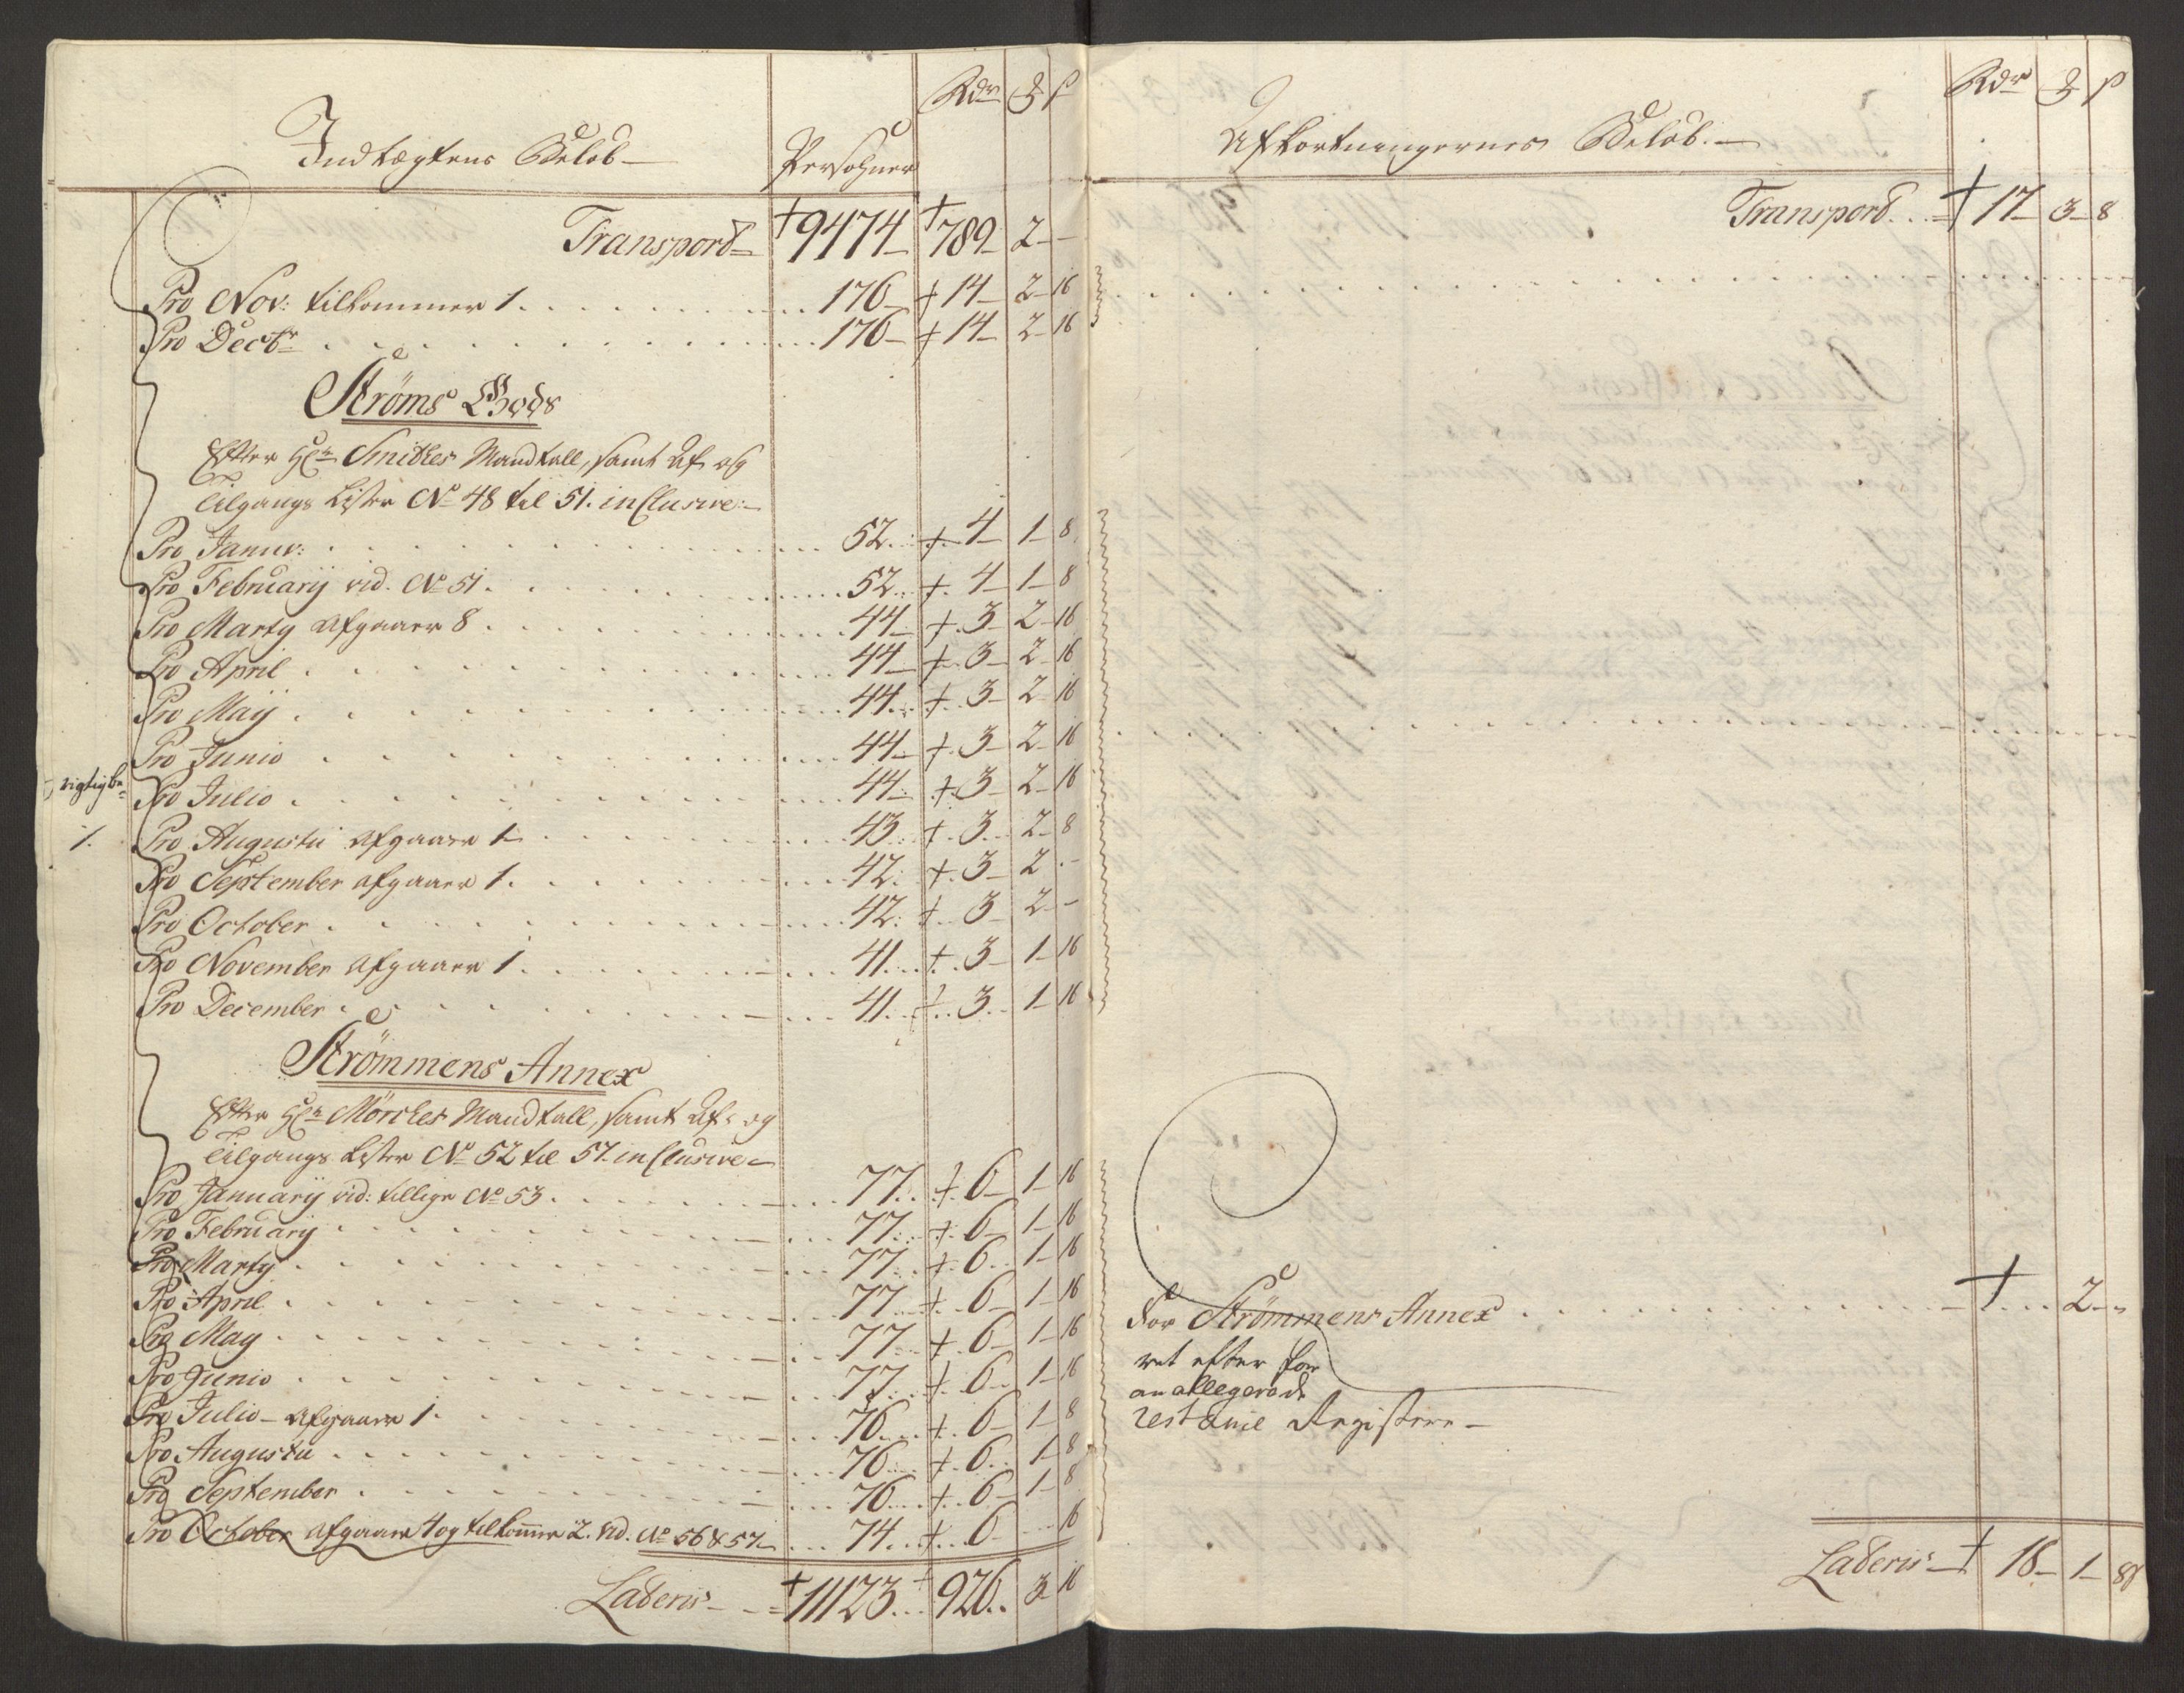 Rdr ₰ ß
Indtægtens Beløb — Persohner
Transpord = † 9474 — † 789 — 2 — —
Pro Nov: tilkommer 1 . . . . 176 — † 14 — 2 — 16
Pro Decbr . . . . 176 — † 14 — 2 — 16
Ströms Gods
Efter Hr Smithes Mandtall, samt Af og
Tilgangs Lister No 48 til 51. inclusive. —
Pro Januv: . . . . 52 . † 4 — 1 — 8
Pro Februarij vid. No 51 . . . . 52 . † 4 — 1 — 8
Pro Marty Afgaaer 8 . . . . 44 — † 3 — 2 — 16
Pro April . . . . 44 — † 3 — 2 — 16
Pro Maij . . . . 44 . † 3 — 2 — 16
Pro Junio . . . . 44 — † 3 — 2 — 16
rigtig be=
Pro Julio . . . . 44 . † 3 — 2 — 16
1. Pro Augusti Afgaaer 1 . . . . 43 . † 3 . 2 — 8
Pro September afgaaer 1 . . . . 42 . † 3 — 2 . —
Pro October . . . . 42 . † 3 — 2 — —
Pro November Afgaaer 1 . . . . 41 . † 3 — 1 — 16
Pro December . . . . 41 . † 3 . 1 — 16
Strömmens Annex
Efter Hr Mörches Mandtall, samt Af- og
Tilgangs Lister No 52 til 57. inclusive —
Pro Januarij vid: tillige No 53 . . . . 77 . † 6 — 1 — 16
Pro Februarij . . . . 77 . † 6 — 1 — 16
Pro Marty . . . . 77 . † 6 . 1 — 16
Pro April . . . . 77 . † 6 — 1 — 16
Pro May . . . . 77 . † 6 — 1 — 16
Pro Junio . . . . 77 . † 6 . 1 — 16
Pro Julio — Afgaaer 1 . . . . 76 . † 6 — 1 — 8
Pro Augusti . . . . 76 . † 6 . 1 — 8
Pro September . . . . 76 . † 6 — 1 — 8
Pro October Afgaaer 4 og tilkommer 2. vid. No 56 & 57 — . . . 74 . † 6 — . . 16
Lateris — = † 11123 . † 926 . 3 16
Rdr ₰ ß
Afkortningernes Beløb. —
Transpord . . = † 17 — 3 — 8
For Strömmens Annex . . . . † . . 2 — "
ret efter for
an allegerede
restance Register —
Lateris — † 18 — 1 — 8